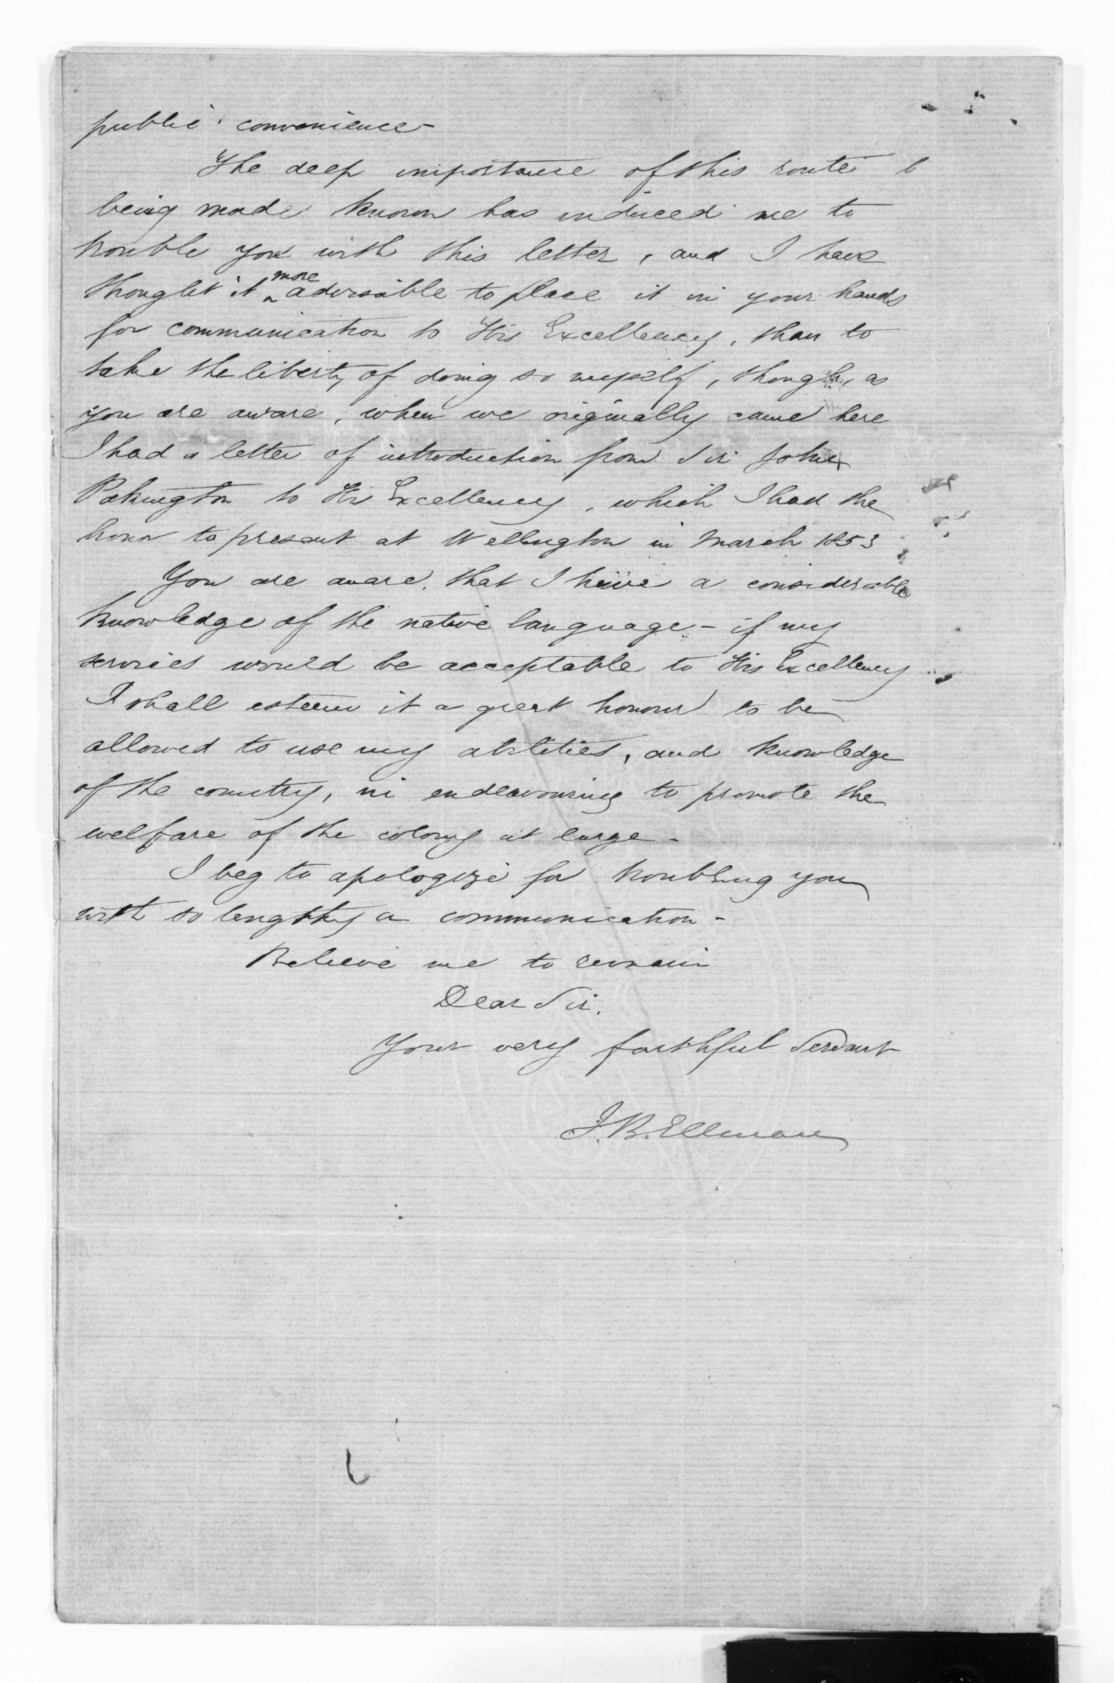 public convenience -
The deep importance of this route
being made known has induced me to
trouble you with this letter, and I have
thought it more advisable to place it in your hands
for communication to His Excellency, than to
take the liberty of doing so myself, though, as
you are aware, when we originally came here
I had a letter of introduction from Sir John
Pakington to His Excellency, which I had the
honor to present at Wellington in March 1853
You are aware that I have a considerable
knowledge of the native language - if my
services would be acceptable to His Excellency
I shall esteem it a great honour to be
allowed to use my abilities, and knowledge
of the country, in endeavouring to promote the
welfare of the colony at large -
I beg to apologize for troubling you
with so lengthy a communication -
Believe me to remain
Dear Sir,
Your very faithful Servant
J. B. Ellman